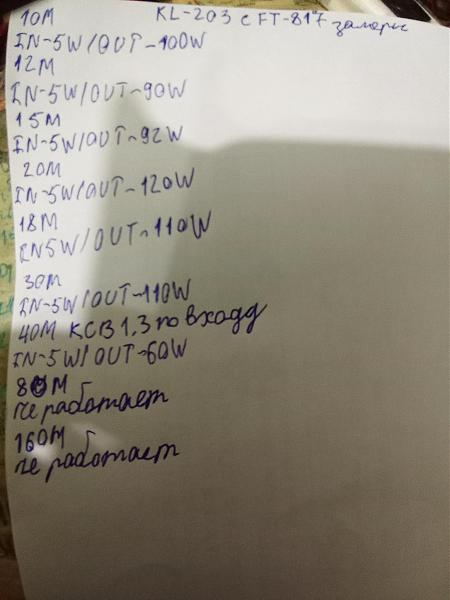 KL-203 с FT-817 замеры
10M
IN-5W/OUT-100W
12M
IN-5W/OUT-90W
15M
IN-5W/OUT-92W
20M
IN-5W/OUT-120W
18M
IN5W/OUT-110W
30M
IN-5W/OUT-110W
40M КСВ 1,3 по входу
IN-5W/OUT-60W
80M
Не работает
160M
Не работает